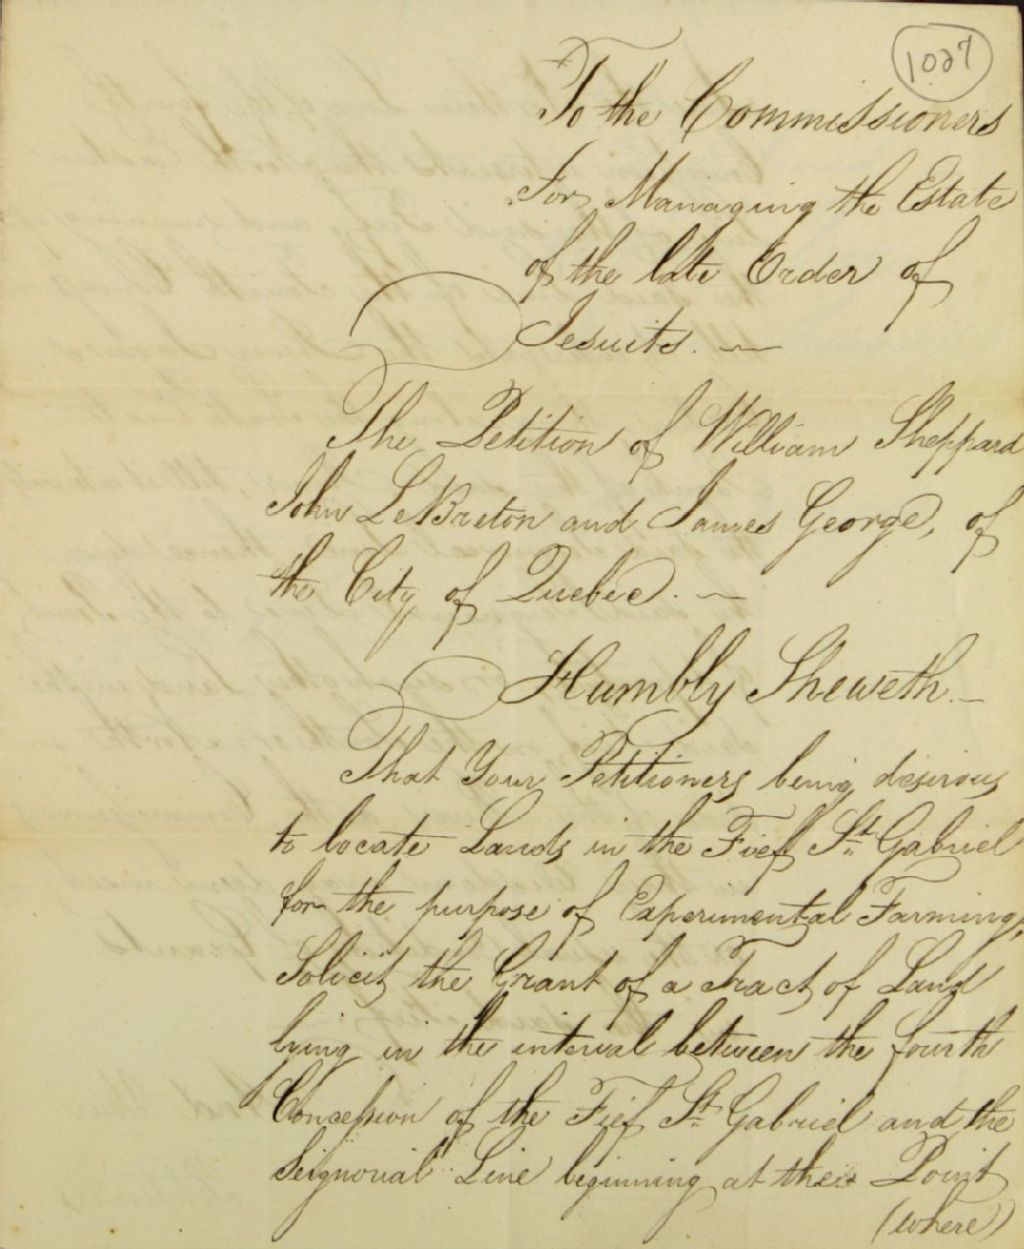 1027
To the Commissioners
For Managing the Estate
of the late Order of
Jesuits.
The Petition of William Sheppard
John LeBreton and James George, of
the City of Quebec.
Humbly Sheweth.
That Your Petitioners being desirous
to locate Lands in the Fief St. Gabriel
for the purpose of Experimental Farming,
Solicit the Grant of a Tract of Land
lying in the interval between the fourth
Concession of the Fief St. Gabriel and the
Seignorial Line beginning at the Point
(where)